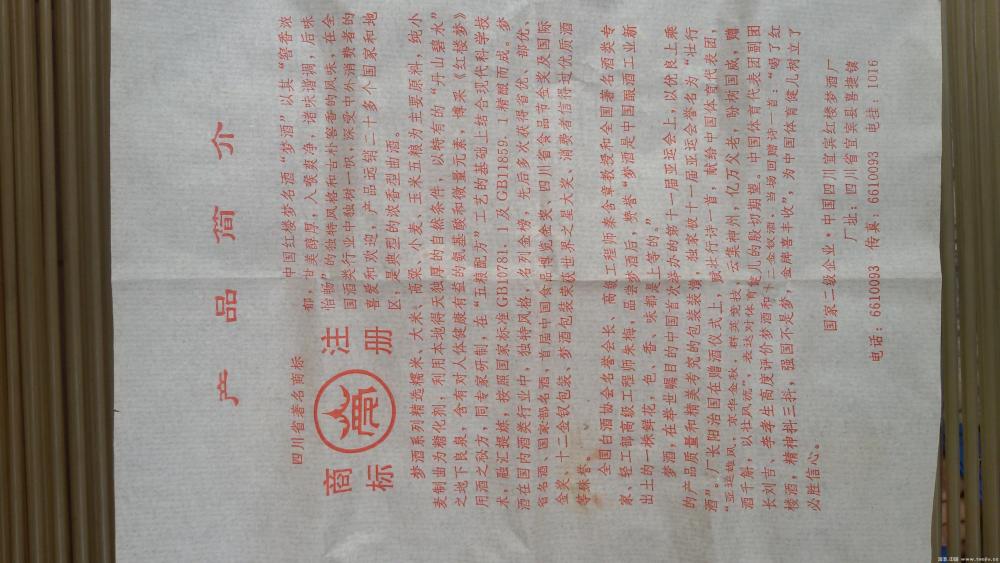 产品简介
四川省著名商标
商 注
标 册
中国红楼梦名酒“梦酒”以其“窖香浓
郁，甘美醇厚，入喉爽净，诸味谐调，后味
怡畅”的独特风格和古朴馨香的风味，在全
国酒类行业中独树一帜，深受中外消费者的
喜爱和欢迎，产品远销二十多个国家和地
区，是典型的浓香型曲酒。
梦酒系列精选糯米、大米、高粱、小麦、玉米五粮为主要原料，纯小
麦制曲为糖化剂，利用本地得天独厚的自然条件，以特有的“丹山碧水”
之地下良泉，含有对人体健康有益的氨基酸和微量元素，博采《红楼梦》
用酒之秘方，同专家研制，在“五粮配方”工艺的基础上结合现代科学技
术，融汇提炼，按照国家标准GB10781.1及GB11859.1精酿而成。梦
酒在国内酒类行业中，独特风格，名列金榜，先后多次获得省优、部优、
省名酒、国家部名酒、首届中国食品博览金奖、四川省食品节金奖及国际
金奖、十二金钗包装、梦酒包装荣获世界之星大奖、消费者信得过优质酒
等殊誉。
全国白酒协会名誉会长、高级工程师秦含章教授和全国著名酒类专
家、轻工部高级工程师朱梅，品尝梦酒后，赞誉“梦酒是中国酿酒工业新
出土的一棵鲜花，色、香、味都是上等的。”
梦酒，在举世瞩目的中国首次举办的第十一届亚运会上，以优良上乘
的产品质量和精美考究的包装装潢，独家被十一届亚运会誉名为“壮行
酒”。厂长阳治国在赠酒仪式上，赋壮行诗一首，献给中国体育代表团，
“亚运雄风，京华金秋，群英竞技，云集神州，亿万父老，盼炳国威，赠
酒千斛，以壮风流”，表达对体育健儿的殷切期望。中国体育代表团副团
长刘吉、李孝生高度评价梦酒和十二金钗酒、当场回赠诗一首：“喝了红
楼酒，精神抖三抖，强国不是梦，金牌喜丰收”，为中国体育健儿树立了
必胜信心。
国家二级企业·中国四川宜宾红楼梦酒厂
厂址：四川省宜宾县喜捷镇
电话：6610093 传真：6610093 电挂：1016